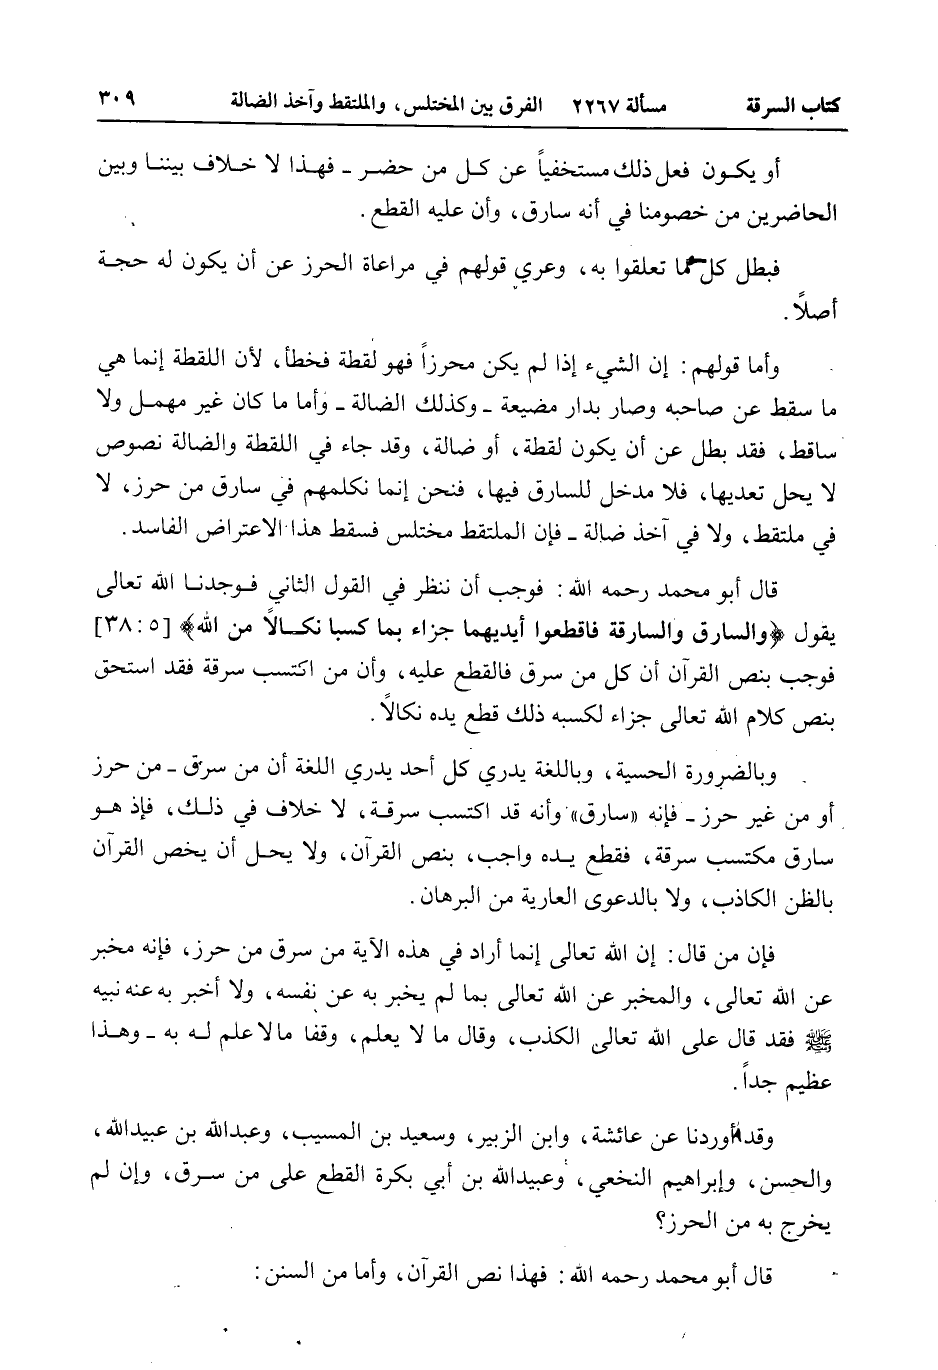 كتاب السرقة مسألة ٢٢٦٧ الفرق بين المختلس، والملتقط وآخذ الضالة ٣٠٩
أو يكون فعل ذلك مستخفياً عن كل من حضر ـ فهذا لا خلاف بيننا وبين
الحاضرين من خصومنا في أنه سارق، وأن عليه القطع.
فبطل كل ما تعلقوا به، وعري قولهم في مراعاة الحرز عن أن يكون له حجة
أصلاً.
وأما قولهم: إن الشيء إذا لم يكن محرزاً فهو لقطة فخطأ، لأن اللقطة إنما هي
ما سقط عن صاحبه وصار بدار مضيعة ـ وكذلك الضالة ـ وأما ما كان غير مهمل ولا
ساقط، فقد بطل عن أن يكون لقطة، أو ضالة، وقد جاء في اللقطة والضالة نصوص
لا يحل تعديها، فلا مدخل للسارق فيها، فنحن إنما نكلمهم في سارق من حرز، لا
في ملتقط، ولا في آخذ ضالة ـ فإن الملتقط مختلس فسقط هذا الاعتراض الفاسد.
قال أبو محمد رحمه الله: فوجب أن ننظر في القول الثاني فوجدنا الله تعالى
يقول ﴿والسارق والسارقة فاقطعوا أيديهما جزاء بما كسبا نكالاً من الله﴾ [٥: ٣٨]
فوجب بنص القرآن أن كل من سرق فالقطع عليه، وأن من اكتسب سرقة فقد استحق
بنص كلام الله تعالى جزاء لكسبه ذلك قطع يده نكالاً.
وبالضرورة الحسية، وباللغة يدري كل أحد يدري اللغة أن من سرق ـ من حرز
أو من غير حرز ـ فإنه «سارق» وأنه قد اكتسب سرقة، لا خلاف في ذلك، فإذ هو
سارق مكتسب سرقة، فقطع يده واجب، بنص القرآن، ولا يحل أن يخص القرآن
بالظن الكاذب، ولا بالدعوى العارية من البرهان.
فإن من قال: إن الله تعالى إنما أراد في هذه الآية من سرق من حرز، فإنه مخبر
عن الله تعالى، والمخبر عن الله تعالى بما لم يخبر به عن نفسه، ولا أخبر به عنه نبيه
ﷺ فقد قال على الله تعالى الكذب، وقال ما لا يعلم، وقفا ما لا علم له به ـ وهذا
عظيم جداً.
وقد أوردنا عن عائشة، وابن الزبير، وسعيد بن المسيب، وعبدالله بن عبيدالله،
والحسن، وإبراهيم النخعي، وعبيدالله بن أبي بكرة القطع على من سرق، وإن لم
يخرج به من الحرز؟
قال أبو محمد رحمه الله: فهذا نص القرآن، وأما من السنن: